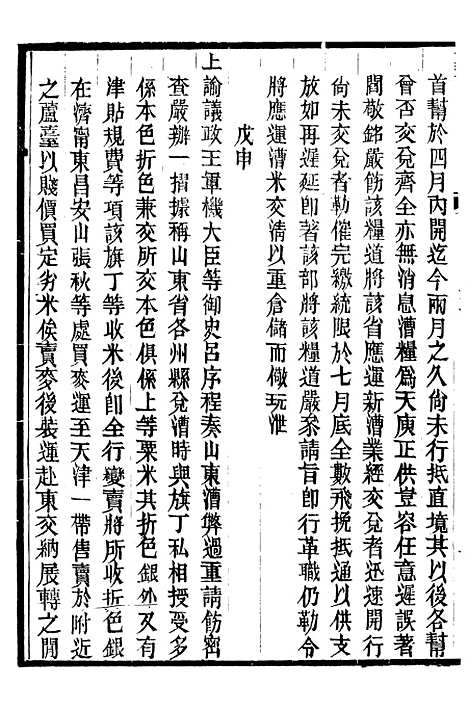 首幫於四月內開迄今兩月之久尚未行抵直境其以後各幫
曾否交兌齊全亦無消息漕糧爲天庾正供豈容任意遲誤著
閻敬銘嚴飭該糧道將該省應運新漕業經交兌者迅速開行
尚未交兌者勒催完繳統限於七月底全數飛挽抵通以供支
放如再遲延卽著該部將該糧道嚴叅請旨卽行革職仍勒令
將應運漕米交淸以重倉儲而儆玩泄
戊申
上諭議政王軍機大臣等御史呂序程奏山東漕弊過重請飭密
查嚴辦一摺據稱山東省各州縣兌漕時與旗丁私相授受多
係本色折色兼交所交本色俱係上等粟米其折色銀外又有
津貼規費等項該旗丁等收米後卽全行變賣將所收折色銀
在濟甯東昌安山張秋等處買麥運至天津一帶售賣於附近
之蘆臺以賤價買定劣米俟賣麥後裝運赴東交納展轉之閒